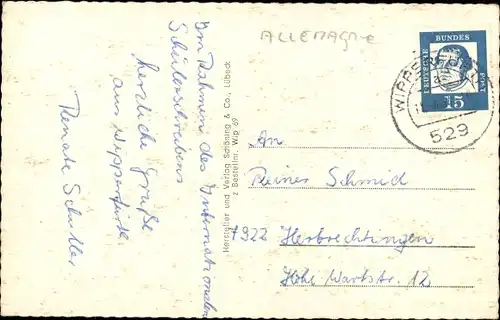 ALLEMAGNE
Im Rahmen des Internationalen
Schülerschreibens
herzliche Grüße
aus Wipperfürth
Renate Schüller
Hersteller und Verlag Schöning & Co., Lübeck
z Bestellnr. Wip 69
DEUTSCHE
BUNDES
POST
15
WIPPERFÜRTH
529
An
Reiner Schmid
7922 Herbrechtingen
Hohe Wartstr. 12